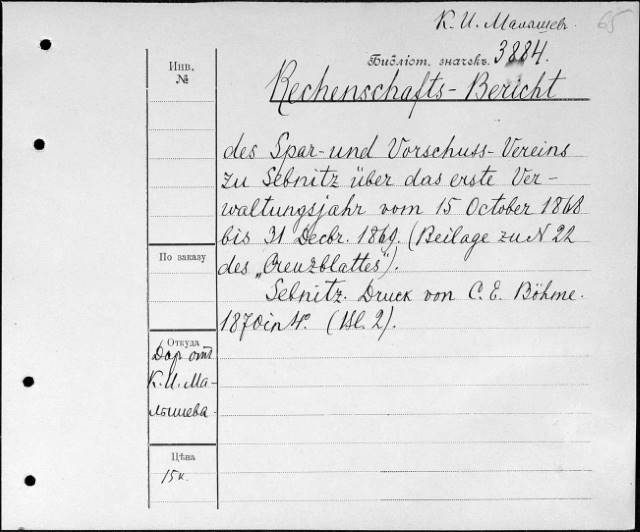 К. И. Малышев. 65
Библіот. значекъ. 3884.
Инв.
№
Rechenschafts-Bericht
des Spar- und Vorschuss-Vereins
zu Sebnitz über das erste Ver-
waltungsjahr vom 15 October 1868
bis 31 Decbr. 1869. (Beilage zu N 22
По заказу
des „Grenzblattes").
Sebnitz. Druck von C. E. Böhme.
1870 in 4°. (Bl. 2).
Откуда
Даръ отъ
К. И. Ма-
лышева.
Цѣна
15 к.